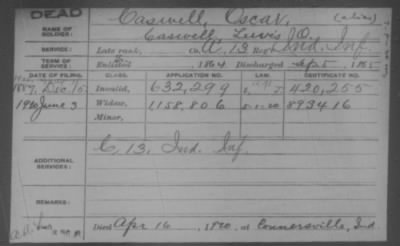 DEAD
NAME OF SOLDIER:
Caswell, Oscar, (alias)
Caswell, Lewis O.
SERVICE:
Late rank, Co. A, 13 Reg't Ind. Inf.
TERM OF SERVICE:
Enlisted , 1864 Discharged Sep 5 , 1865
DATE OF FILING. CLASS. APPLICATION NO. LAW. CERTIFICATE NO.
1887, Dec. 15 Invalid, 632,299 420,255
June 3 Widow, 1158,806 893416
Minor,
C. 13, Ind. Inf.
ADDITIONAL SERVICES:
REMARKS:
Died Apr 16 , at Connersville, Ind.